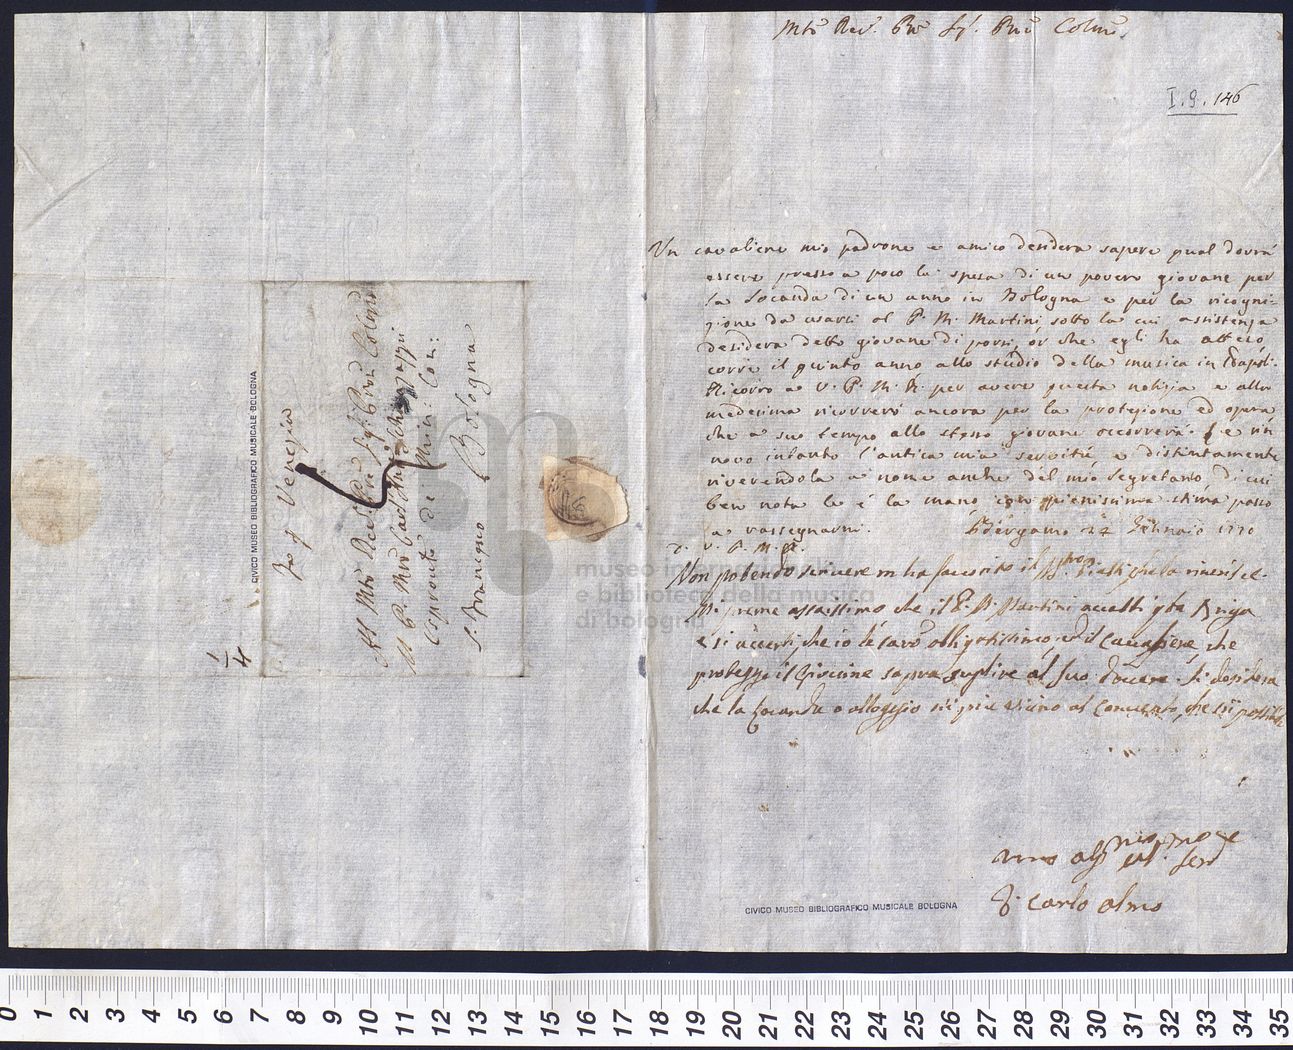 Mto Revdo Pre Sigr Prne Colmo
I. 9. 146
Un cavaliere mio padrone e amico desidera sapere qual dovrà
essere presso a poco la spesa di un povero giovane per
la locanda di un anno in Bologna e per la ricogni=
zione da usarsi al P. M. Martini sotto la cui assistenza
desidera detto giovane di porsi, or che egli ha
corre il quinto anno allo studio della musica in Napoli.
Ricorro a V. P. M. R. per avere questa notizia e alla
medesima ricorrerò ancora per la protezione ed opera
che a suo tempo allo stesso giovane occorrerà. E rin
novo intanto l'antica mia servitù e distintamente
riverendola a nome anche del mio Segretario, di cui
ben nota le è la mano, con pienissima stima passo
a rassegnarmi. Bergamo 24 Gennaio 1770
D. V. P. M. R.
Non potendo scrivere m'ha favorito il che la riverisce.
Mi preme assaissimo che il P. M. Martini accetti qta Briga
e si accerti, che io le sarò obbligatissimo, ed il Cavaliere, che
protegge il Giovine saprà suplire al suo dovere. Si desidera
che la locanda o alloggio sii più vicino al Convento, che sii possibile
D. Carlo
CIVICO MUSEO BIBLIOGRAFICO MUSICALE BOLOGNA
Venezia
Al Mto Revdo Pre Sigr Pron Colmo
Il P. Mro
Min: Con:
S. Francesco Bologna
1/4
CIVICO MUSEO BIBLIOGRAFICO MUSICALE BOLOGNA
museo internazionale
e biblioteca della musica
di bologna
0 1 2 3 4 5 6 7 8 9 10 11 12 13 14 15 16 17 18 19 20 21 22 23 24 25 26 27 28 29 30 31 32 33 34 35